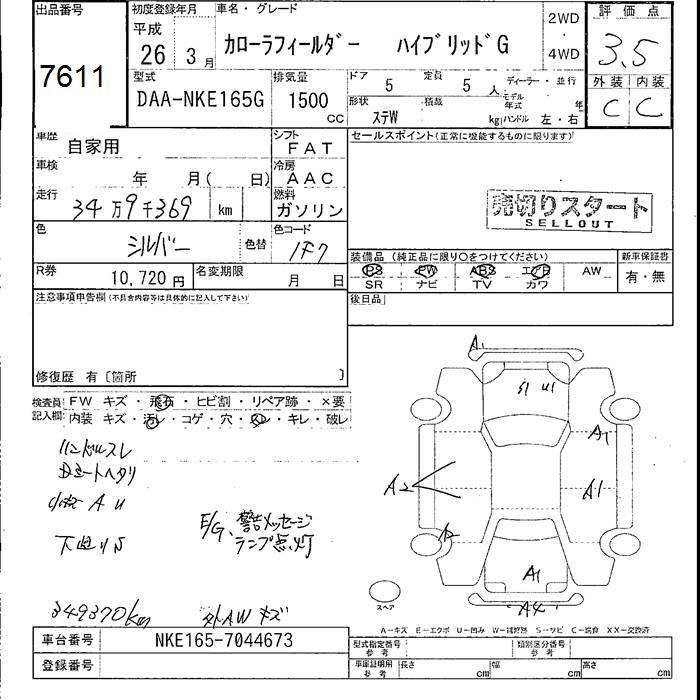 出品番号
7611
初度登録年月
平成
26 3月
車名・グレード
カローラフィールダー ハイブリッドG
2WD
・
4WD
評価点
3.5
外装 内装
C C
型式
DAA-NKE165G
排気量
1500
CC
ドア 5 定員 5 人
ディーラー・並行
形状 ステW 積載 kg
モデル年式 年
ハンドル 左・右
車歴 自家用
シフト
FAT
車検 年 月( 日)
冷房
AAC
走行 34万9千369 km
燃料
ガソリン
色 シルバー 色替
色コード
1F7
R券 10,720円
名変期限 月 日
セールスポイント(正常に機能するものに限ります)
売切りスタート
SELLOUT
装備品(純正品に限り○をつけてください)
新車保証書
PS PW ABS エアB AW
SR ナビ TV カワ
有・無
後日品
注意事項申告欄(不具合内容等は具体的に記入して下さい)
修復歴 有〔箇所 〕
検査員記入欄
FW キズ・飛石・ヒビ割・リペア跡・×要
内装 キズ・汚レ・コゲ・穴・スレ・キレ・破レ
ハンドルスレ
Dシートヘタリ
小傷 A U
下廻りS
E/G、警告メッセージ
ランプ点灯
349370km
外AWキズ
A1
S1 U1
A1
A2
A1
A1
A4
スペア
A-キズ E-エクボ U-凹み W-補修跡 S-サビ C-腐食 XX-交換済
車台番号 NKE165-7044673
登録番号
型式指定番号
参考
類別区分番号
参考
車庫証明用
参考
長さ cm 幅 cm 高さ cm